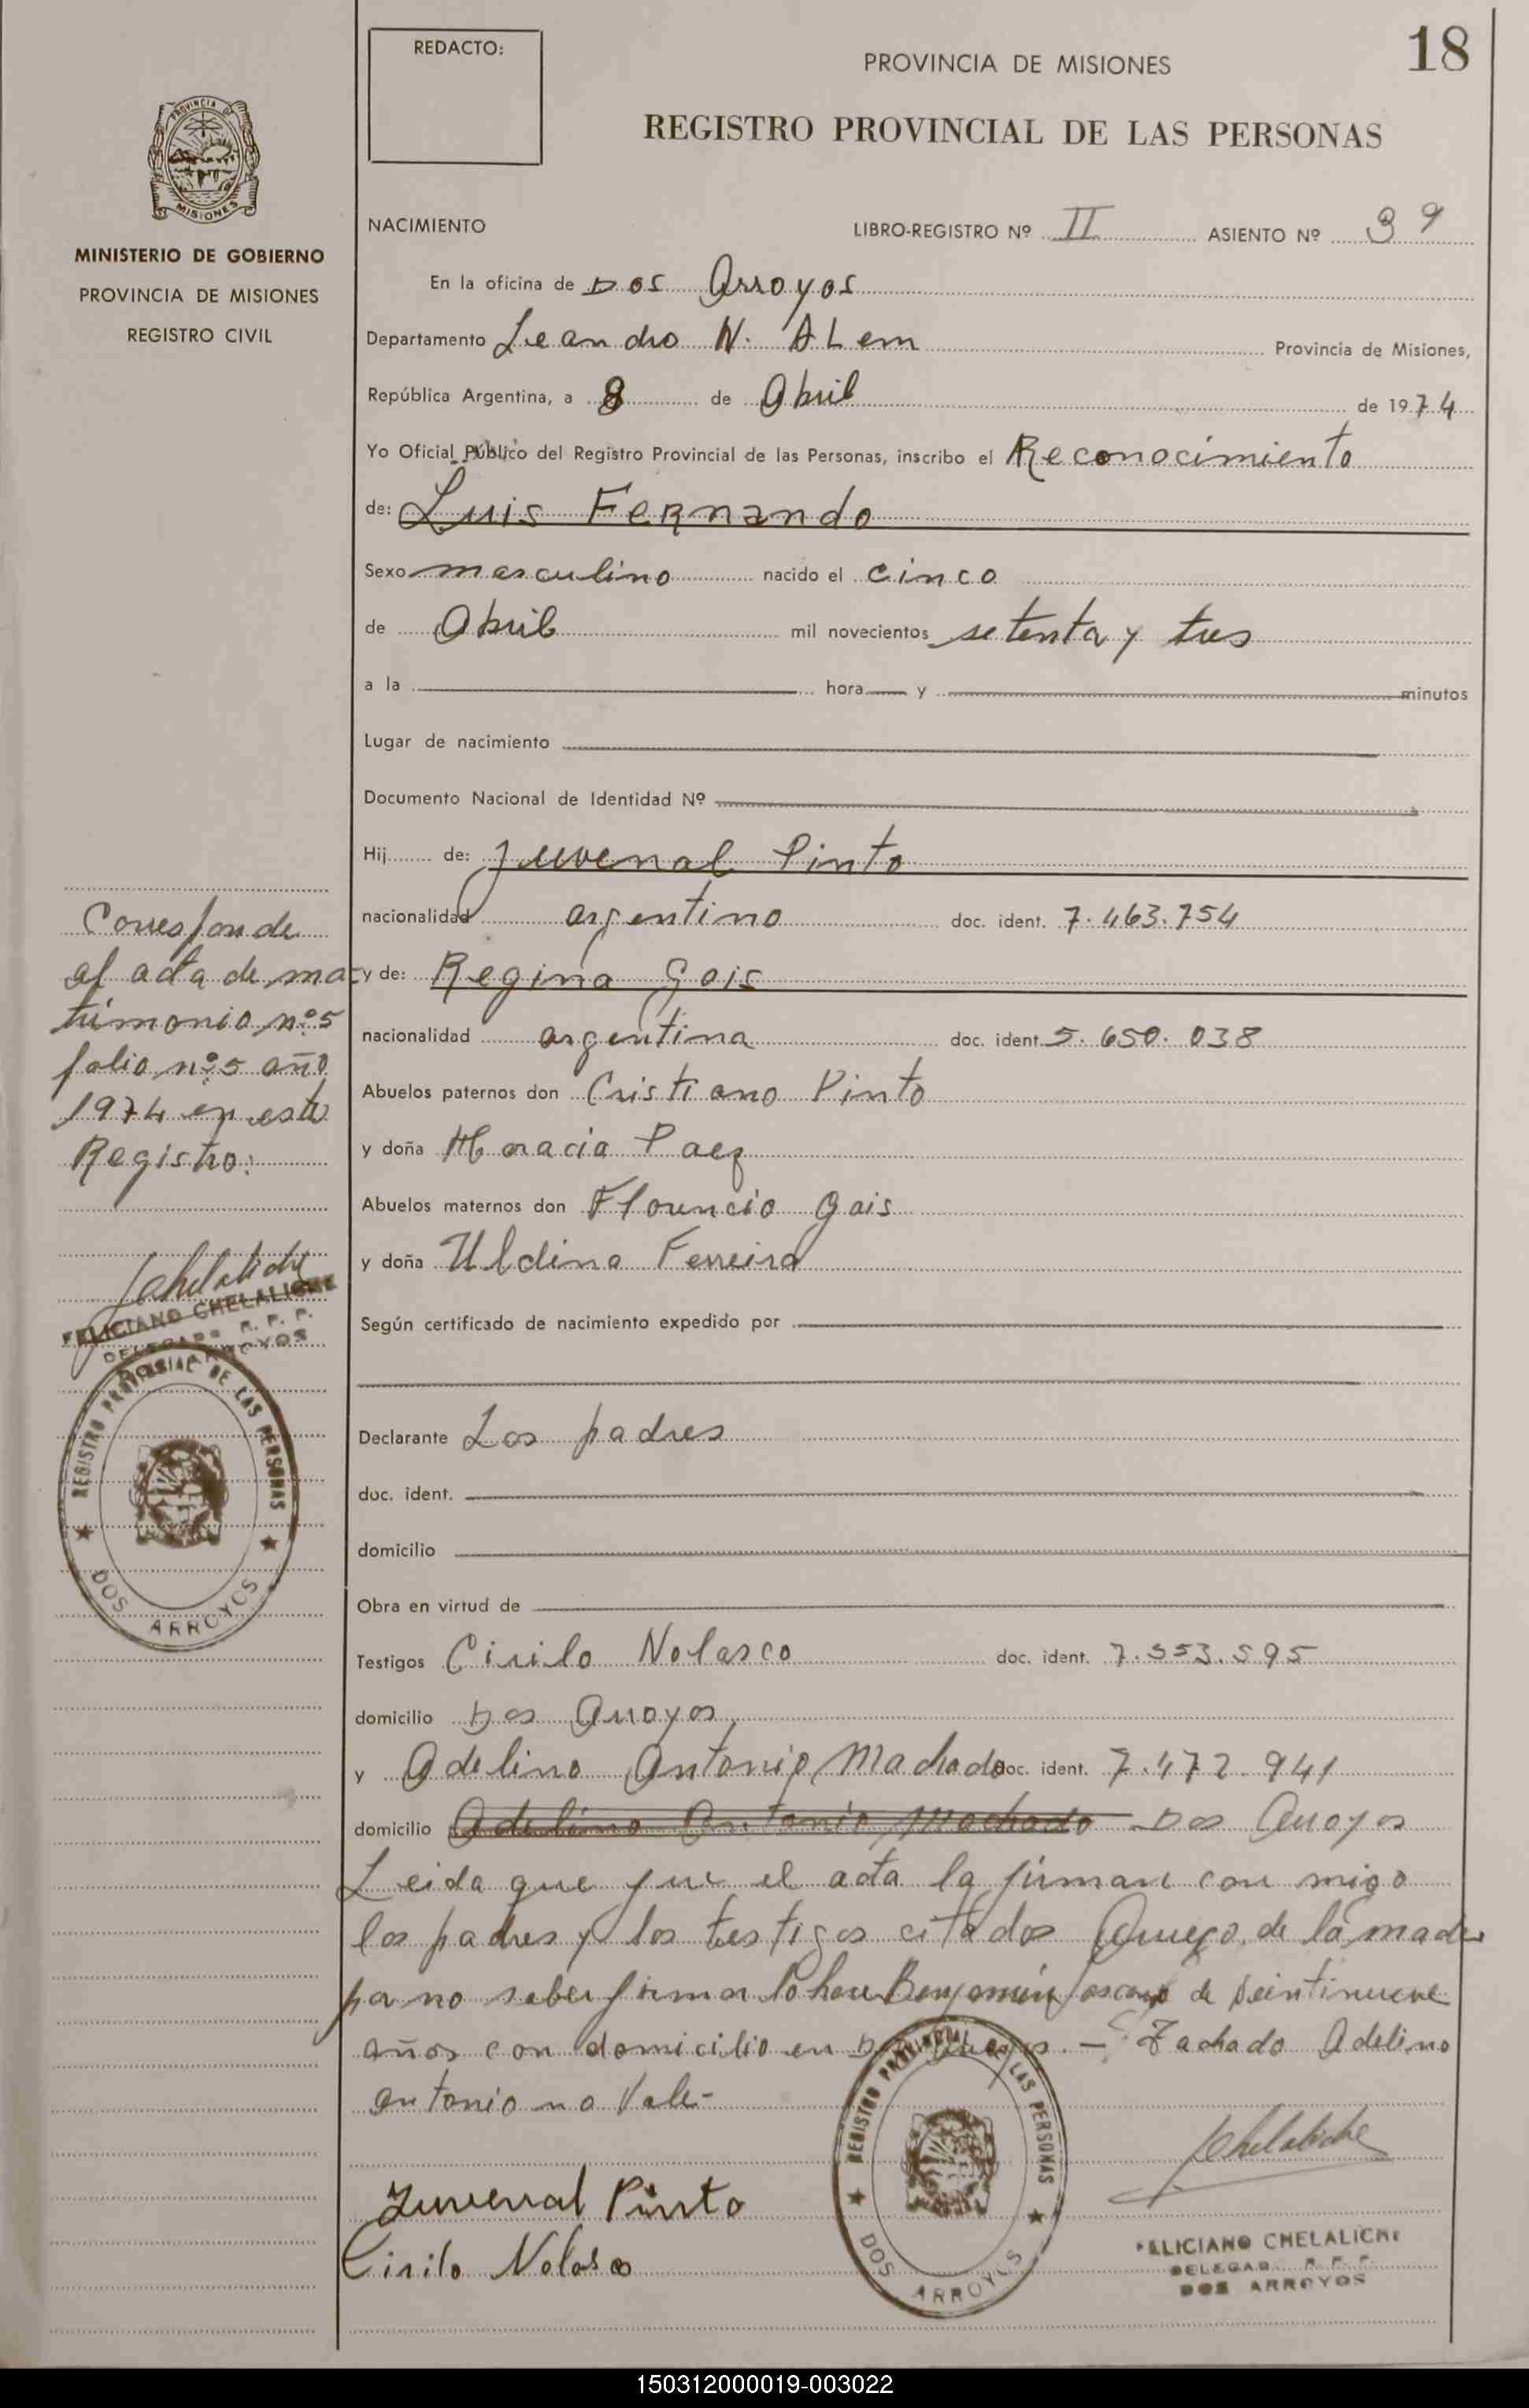 REDACTO:
PROVINCIA DE MISIONES
18
REGISTRO PROVINCIAL DE LAS PERSONAS
PROVINCIA DE
MISIONES
MINISTERIO DE GOBIERNO
PROVINCIA DE MISIONES
REGISTRO CIVIL
NACIMIENTO
LIBRO-REGISTRO Nº II ASIENTO Nº 39
En la oficina de Dos Arroyos
Departamento Leandro N. ALem Provincia de Misiones,
República Argentina, a 8 de Abril de 1974
Yo Oficial Público del Registro Provincial de las Personas, inscribo el Reconocimiento
de: Luis Fernando
Sexo masculino nacido el cinco
de Abril mil novecientos setenta y tres
a la hora y minutos
Lugar de nacimiento
Documento Nacional de Identidad Nº
Hij de: Juvenal Pinto
nacionalidad argentino doc. ident. 7.463.754
y de: Regina Gois
nacionalidad argentina doc. ident. 5.650.038
Abuelos paternos don Cristiano Pinto
y doña Horacia Paez
Abuelos maternos don Florencio Gois
y doña Uldina Ferreira
Según certificado de nacimiento expedido por
Declarante Los padres
doc. ident.
domicilio
Obra en virtud de
Testigos Cirilo Nolasco doc. ident. 7.553.595
domicilio Dos Arroyos
y Adelino Antonio Machado doc. ident. 7.472.941
domicilio Adelino Antonio Machado Dos Arroyos
Leida que fue el acta la firman con migo
los padres y los testigos citados Arruego de la madre
por no saber firmar lo hace Benjamín de veintinueve
años con domicilio en Dos Arroyos. – Tachado Adelino
Antonio no Vale-
Juvenal Pinto
Cirilo Nolasco
Corresponde
al acta de ma
trimonio nº 5
folio nº 5 año
1974 en este
Registro:
FELICIANO CHELALICHE
DELEGADO R. P. P.
DOS ARROYOS
REGISTRO PROVINCIAL DE LAS PERSONAS
DOS ARROYOS
REGISTRO PROVINCIAL DE LAS PERSONAS
DOS ARROYOS
Chelaliche
FELICIANO CHELALICHE
DELEGADO R. P. P.
DOS ARROYOS
150312000019-003022